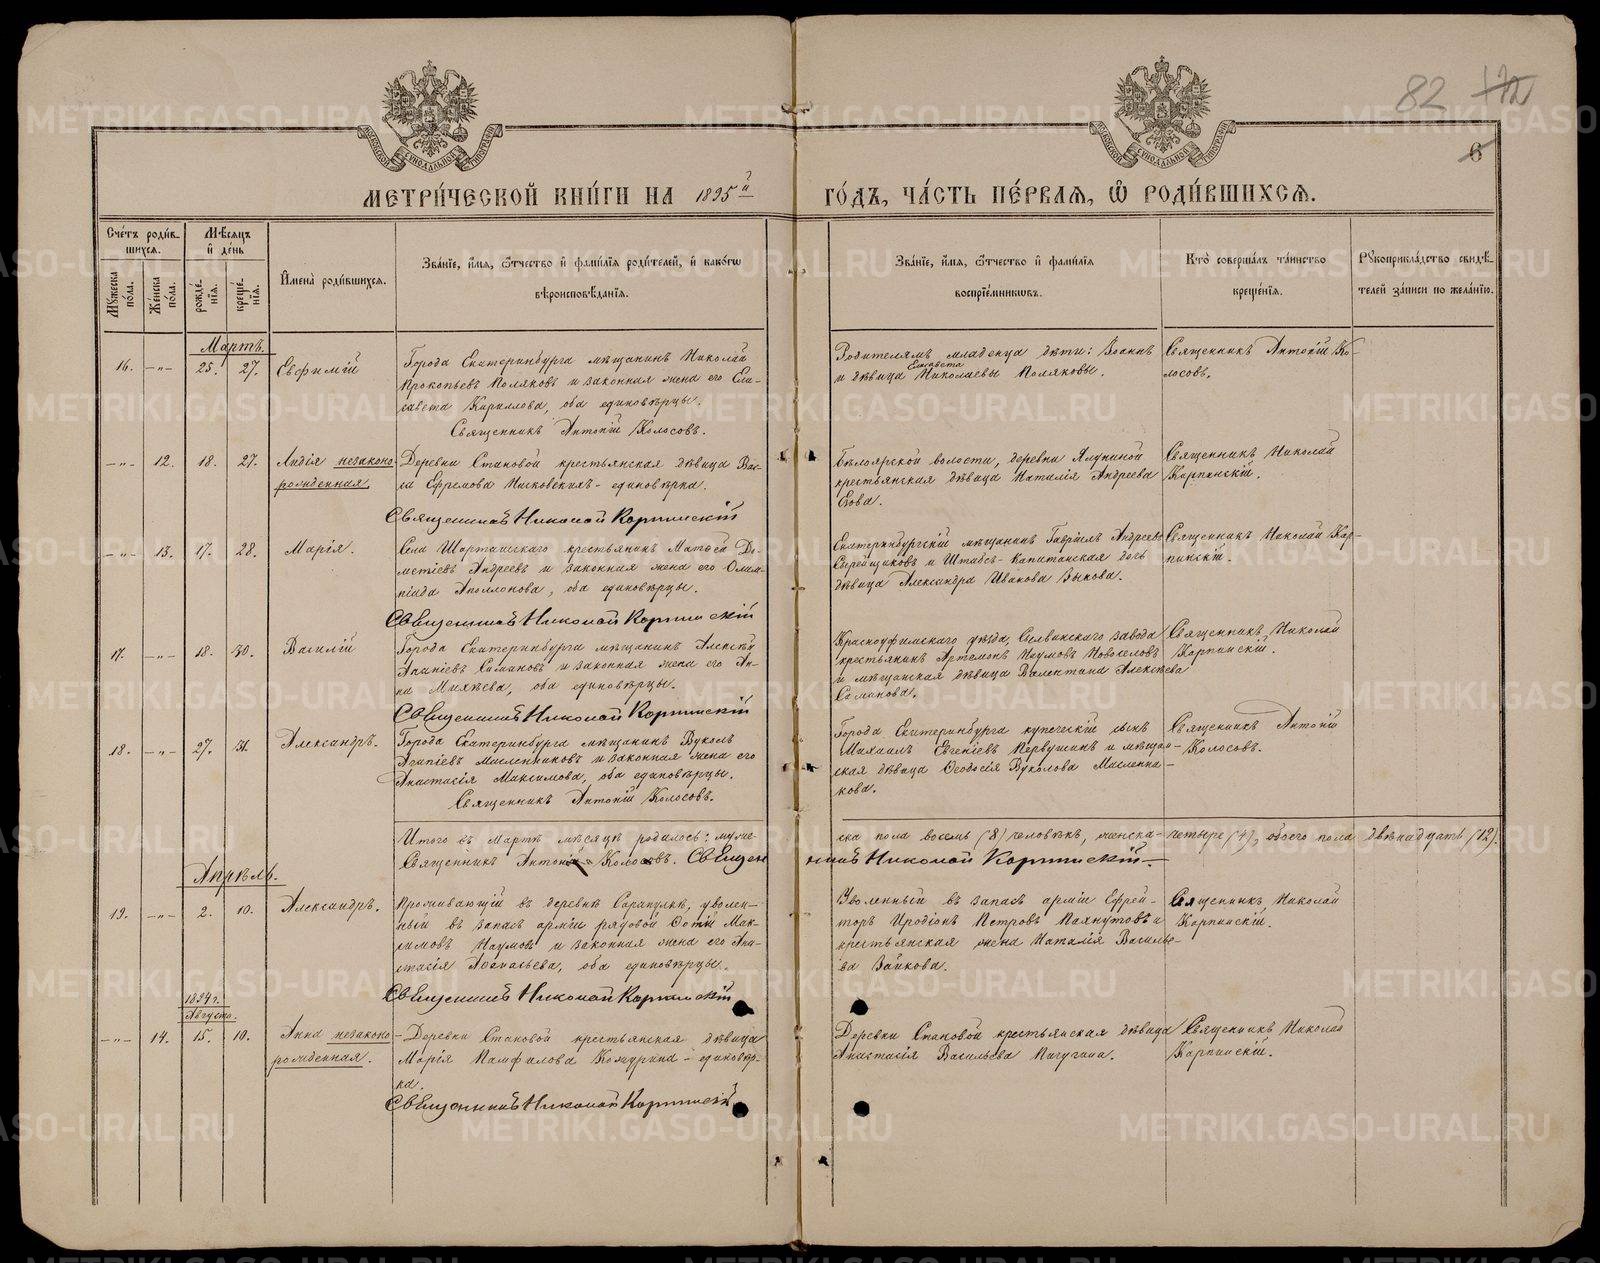 82
6
МОСКОВСКОЙ СѴНОДАЛЬНОЙ ТИПОГРАФІИ
МОСКОВСКОЙ СѴНОДАЛЬНОЙ ТИПОГРАФІИ
МЕТРИ́ЧЕСКОЙ КНИ́ГИ НА 1895й ГО́ДЪ, ЧА́СТЬ ПЕ́РВАѦ, Ѡ҆ РОДИ́ВШИХСѦ.
Сче́тъ роди́вшихсѧ.
Мꙋ́жеска по́ла.
Же́нска по́ла.
Мѣ́сѧцъ и҆ де́нь
рожде́нїѧ.
креще́нїѧ.
И҆мена̀ роди́вшихсѧ.
Зва́нїе, и҆́мѧ, ѻ҆́тчество и҆ фами́лїѧ роди́телей, и҆ како́гѡ
вѣроисповѣ́данїѧ.
Зва́нїе, и҆́мѧ, ѻ҆́тчество и҆ фами́лїѧ
воспрїе́мникѡвъ.
Кто̀ соверша́лъ та́инство
креще́нїѧ.
Рꙋкоприкла́дство свидѣ́телей за́писи по жела́нїю.
Мартъ.
16. -„- 25. 27. Евфимій
Города Екатеринбурга мѣщанинъ Николай
Прокопьевъ Поляковъ и законная жена его Ели-
савета Кириллова, оба единовѣрцы.
Священникъ Антоній Колосовъ.
Родителямъ младенца дѣти: Іоаннъ
и дѣвица Елисавета Николаевы Поляковы.
Священникъ Антоній Ко-
лосовъ.
-„- 12. 18. 27. Лидія незаконо-
рожденная.
Деревни Становой крестьянская дѣвица Вас-
са Ефремова Насковскихъ - единовѣрка.
Священникъ Николай Карпинскій
Бѣлоярской волости, деревни Ялуниной
крестьянская дѣвица Наталія Андреева
Священникъ Николай
Карпинскій.
-„- 13. 17. 28. Марія.
Села Шарташскаго крестьянинъ Матѳей Ди-
митіевъ Андреевъ и законная жена его Олим-
піада Аполлонова, оба единовѣрцы.
Священникъ Николай Карпинскій
Екатеринбургскій мѣщанинъ Гавріилъ Андреевъ
Сырейщиковъ и Штабсъ-Капитанская дочь
дѣвица Александра Иванова Зыкова.
Священникъ Николай Кар-
пинскій.
17. -„- 18. 30. Василій
Города Екатеринбурга мѣщанинъ Алексѣй
Ананіевъ Самановъ и законная жена его Ан-
на Михѣева, оба единовѣрцы.
Священникъ Николай Карпинскій
Красноуфимскаго уѣзда, Сылвинскаго завода
крестьянинъ Артемонъ Наумовъ Новоселовъ
и мѣщанская дѣвица Валентина Алексѣева
Саманова.
Священникъ Николай
Карпинскій.
18. -„- 27. 31. Александръ.
Города Екатеринбурга мѣщанинъ Вуколъ
Агапіевъ Масленниковъ и законная жена его
Анастасія Максимова, оба единовѣрцы.
Священникъ Антоній Колосовъ.
Города Екатеринбурга купеческій сынъ
Михаилъ Евгеніевъ Первушинъ и мѣщан-
ская дѣвица Ѳеодосія Вуколова Масленни-
кова.
Священникъ Антоній
Колосовъ.
Итого въ Мартѣ мѣсяцѣ родилось: муже-
ска пола восемь (8) человѣкъ, женска - четыре (4), обоего пола двѣнадцать (12).
Священникъ Антоній Колосовъ. Священникъ Николай Карпинскій
Апрѣль.
19. -„- 2. 10. Александръ.
Проживающій въ деревнѣ Сарапулкѣ, уволен-
ный въ запасъ арміи рядовой Фотій Мак-
симовъ Наумовъ и законная жена его Ана-
стасія Аѳанасьева, оба единовѣрцы.
Священникъ Николай Карпинскій
Уволенный въ запасъ арміи Ефрей-
торъ Иродіонъ Петровъ Пахнутовъ и
крестьянская жена Наталія Василье-
ва Зайкова.
Священникъ Николай
Карпинскій.
1894 г.
Августа.
-„- 14. 15. 10. Анна незаконо-
рожденная.
Деревни Становой крестьянская дѣвица
Марія Памфилова Кожурина - единовѣр-
ка.
Священникъ Николай Карпинскій
Деревни Становой крестьянская дѣвица
Анастасія Васильева Пичугина.
Священникъ Николай
Карпинскій.
METRIKI.GASO-URAL.RU